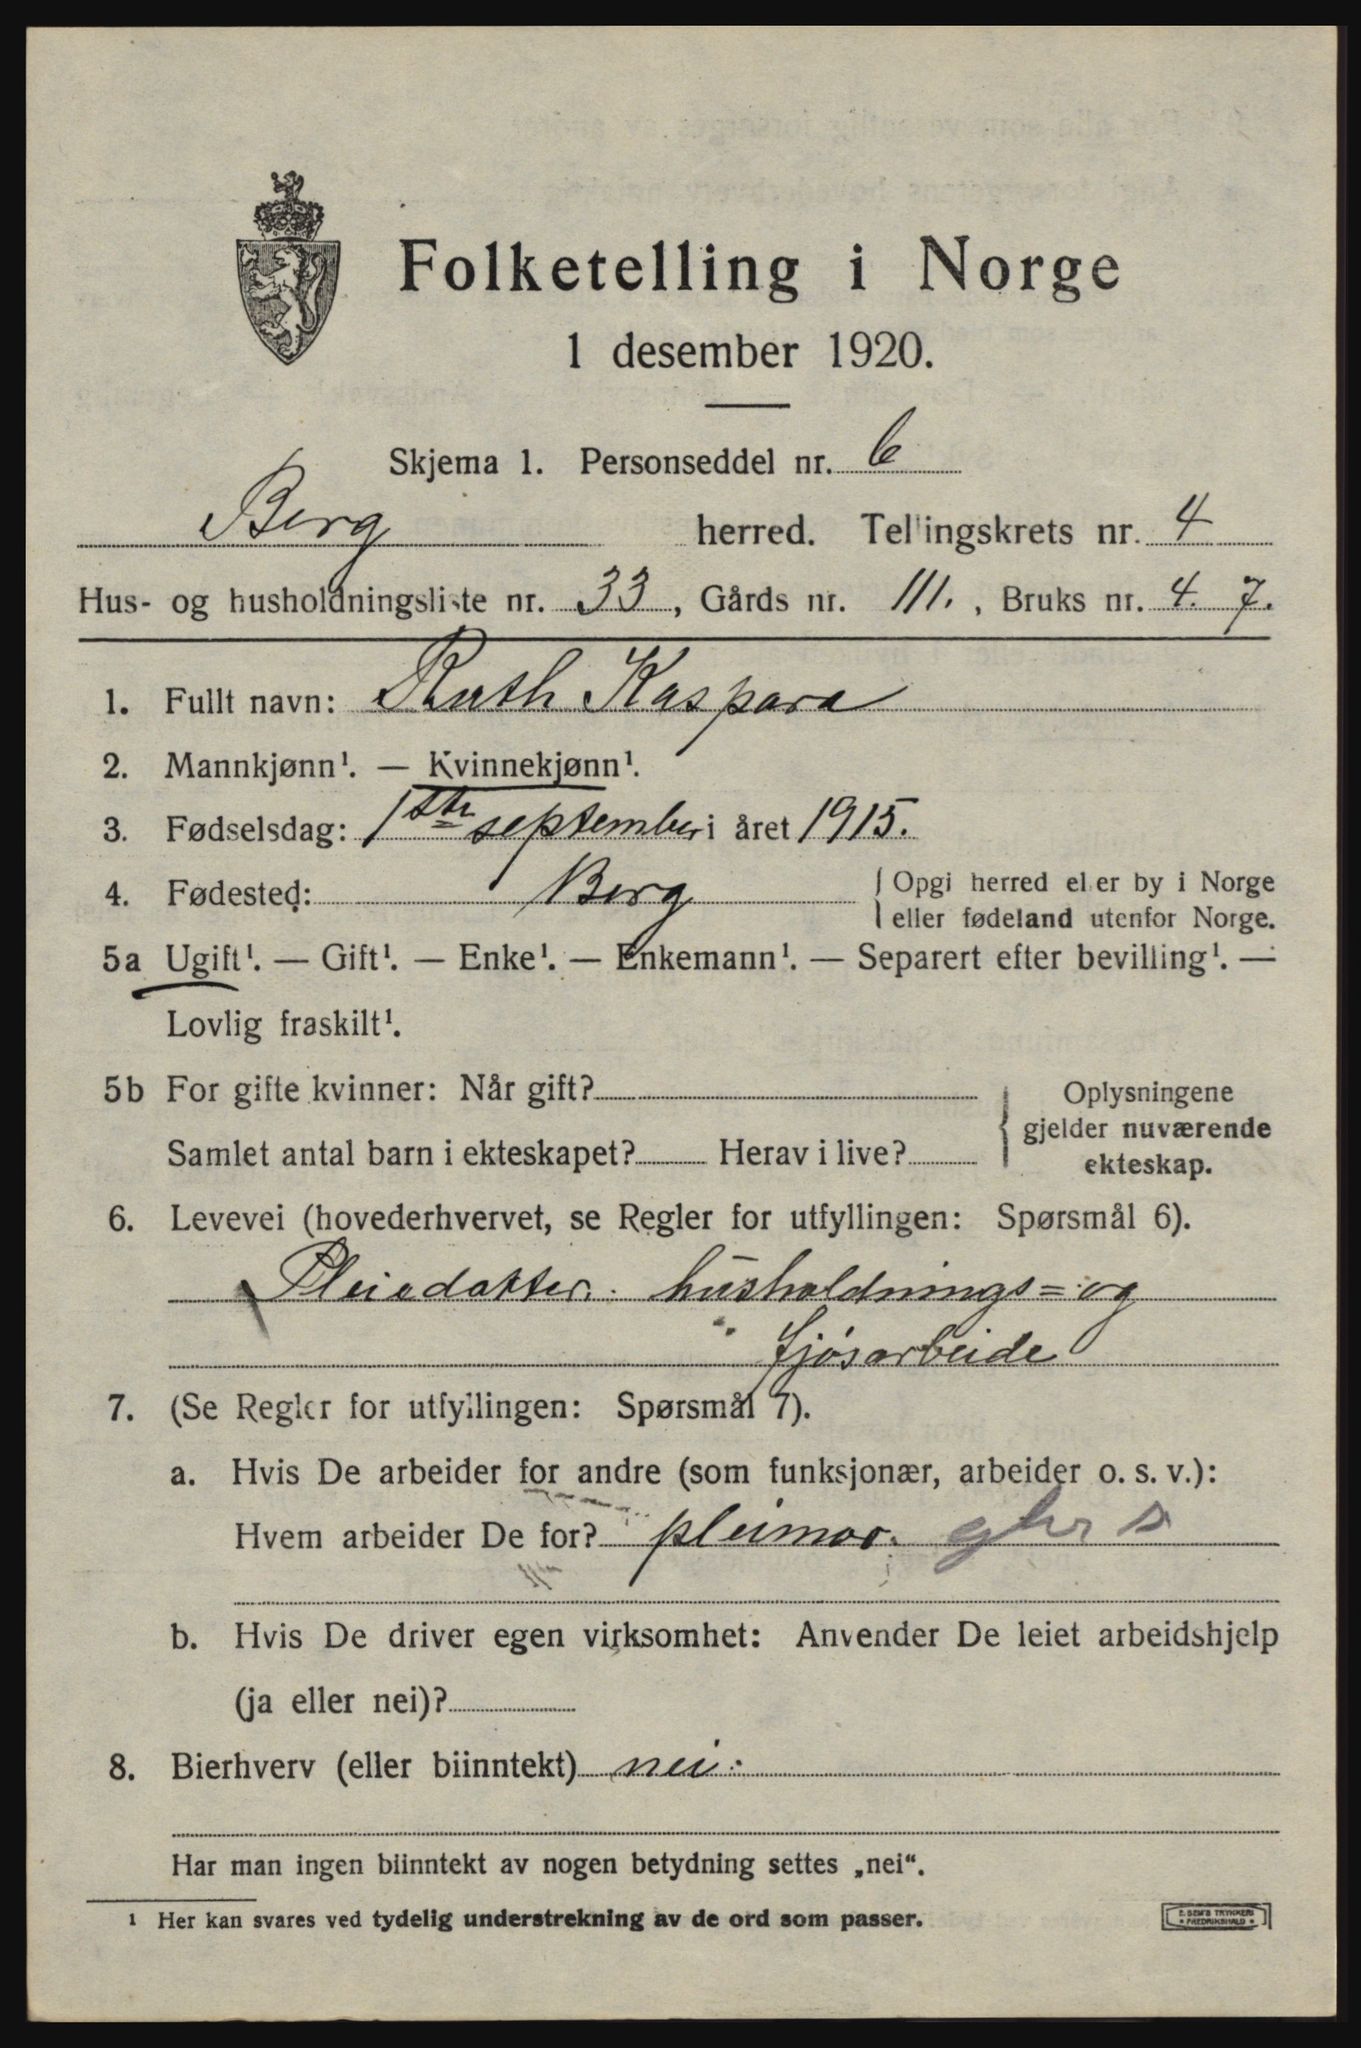 Folketelling i Norge
1 desember 1920.
Skjema 1. Personseddel nr. 6
Berg herred. Tellingskrets nr. 4
Hus- og husholdningsliste nr. 33, Gårds nr. 111., Bruks nr. 4. 7.
1. Fullt navn: Ruth Kaspara
2. Mannkjønn¹. — Kvinnekjønn¹.
3. Fødselsdag: 1ste september i året 1915.
4. Fødested: Berg { Opgi herred eller by i Norge
eller fødeland utenfor Norge.
5a Ugift¹. — Gift¹. — Enke¹. — Enkemann¹. — Separert efter bevilling¹. —
Lovlig fraskilt¹.
5b For gifte kvinner: Når gift?
Samlet antal barn i ekteskapet? Herav i live?
{ Oplysningene
gjelder nuværende
ekteskap.
6. Levevei (hovederhvervet, se Regler for utfyllingen: Spørsmål 6).
Pleiedatter. husholdnings= og
fjøsarbeide
7. (Se Regler for utfyllingen: Spørsmål 7).
a. Hvis De arbeider for andre (som funksjonær, arbeider o. s. v.):
Hvem arbeider De for? pleimor.
b. Hvis De driver egen virksomhet: Anvender De leiet arbeidshjelp
(ja eller nei)?
8. Bierhverv (eller biinntekt) nei.
Har man ingen biinntekt av nogen betydning settes „nei“.
¹ Her kan svares ved tydelig understrekning av de ord som passer.
E. SEM'S TRYKKERI
• FREDRIKSHALD •